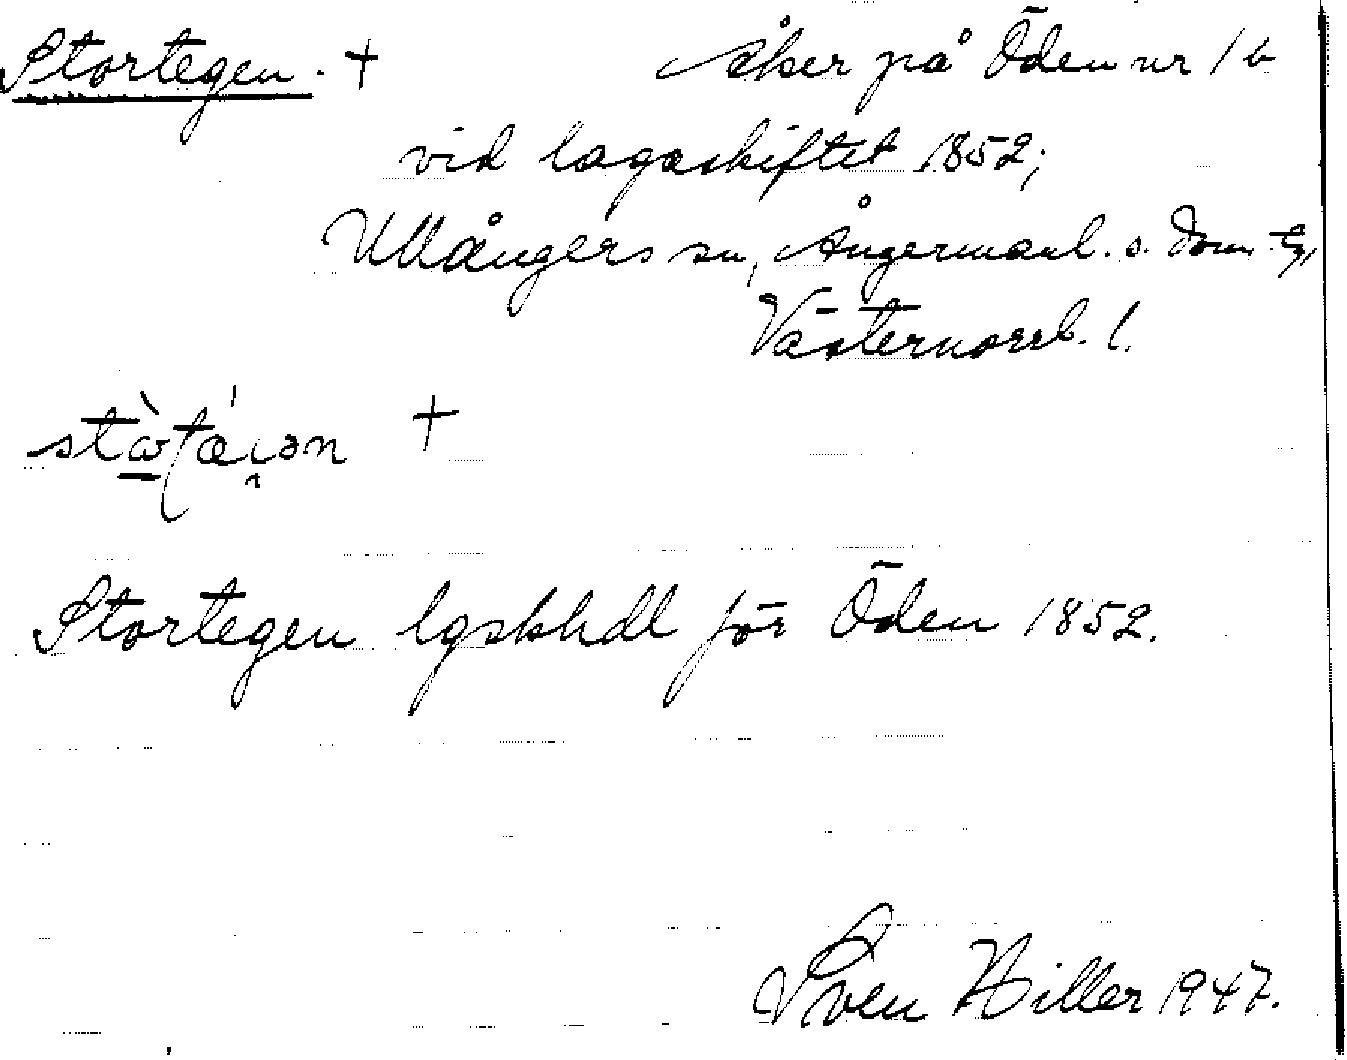 Stortegen. + åker på Öden nr 1 b
vid lagaskiftet 1852;
Ullångers sn, Ångermanl. s. doms tg,
Västernorrl. l.
+
Stortegen lgskhdl för Öden 1852.
Sven Hiller 1947.